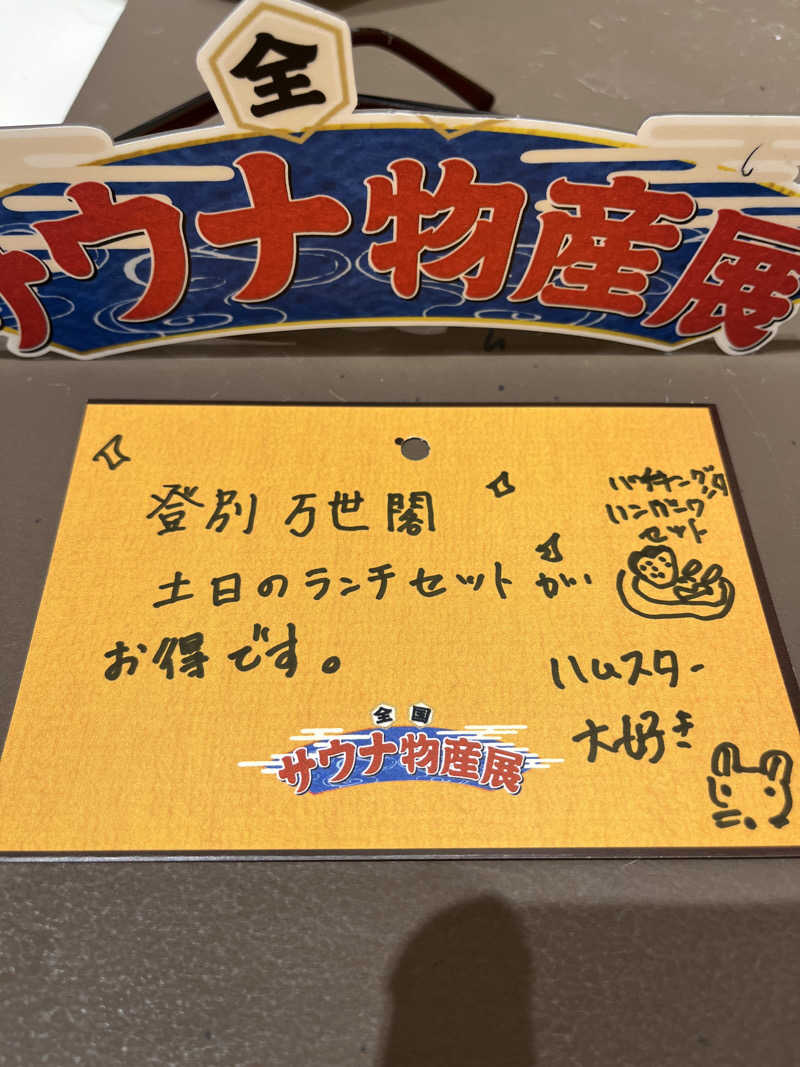 全
サウナ物産展
登別 万世閣
土日のランチセットが
お得です。
ハンバーグ
セット
ハムスター
大好き
全国
サウナ物産展